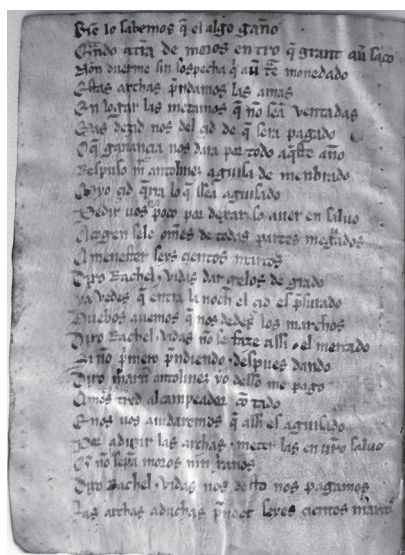 Bie lo sabemos q̃ el algo gaño
Qñdo a trra de moros entro q̃ grant auẽ saco
Non duerme sin sospecha q̃ auẽ tiẽ monedado
Estas archas pndamos las amas
En logar las metamos q̃ nõ seã ventadas
Mas dezid nos del cid de q̃ sera pagado
O q̃ ganancia nos dara por todo aq̃ste año
Respuso mr antolinez a guisa de menbrado
Myo cid q̃rra lo q̃ ssea aguisado
Pedir uos a poco por dexar so auer en saluo
Acogen sele om̃es de todas partes megados
A menester seys cientos marcos
Dixo Rachel ⁊ vidas dar gelos de grado
Ya vedes q̃ entra la noch el cid es pssurado
Huebos auemos q̃ nos dedes los marchos
Dixo Rachel ⁊ vidas nõ se faze assi ⁊ el mercado
Si nõ pmero pndiendo ⁊ despues dando
Dixo martin antolinez yo desso me pago
Amos tred al campeador cõtado
E nos uos aiudaremos q̃ assi es aguisado
Por aduzir las archas ⁊ meter las en uro saluo
Q̃ nõ lo sepã moros nin xanos
Dixo Rachel ⁊ vidas nos desto nos pagamos
Las archas aduchas pndet seyes cientos marcos